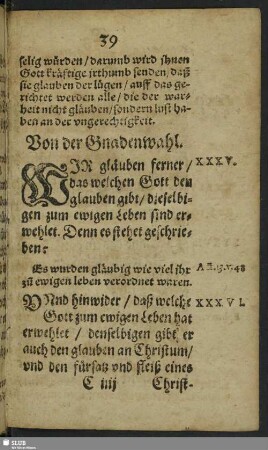 39
selig würden/ darumb wird jhnen
Gott kräftige jrthumb senden/ daß
sie glauben der lügen/ auff das ge-
richtet werden alle/ die der war-
heit nicht gläuben/ sondern lust ha-
ben an der vngerechtigkeit.
Von der Gnadenwahl.
WIR gläuben ferner/ XXXV.
das welchen Gott den
glauben gibt/ dieselbi-
gen zum ewigen Leben sind er-
wehlet. Denn es stehet geschrie-
ben:
Es wurden gläubig wie viel jhr
zū ewigen leben verordnet waren.
VNnd hinwider/ daß welche XXXVI.
Gott zum ewigen Leben hat
erwehlet/ denselbigen gibt er
auch den glauben an Christum/
vnd den fürsatz vnd fleiß eines
C iiij Christ-
SLUB